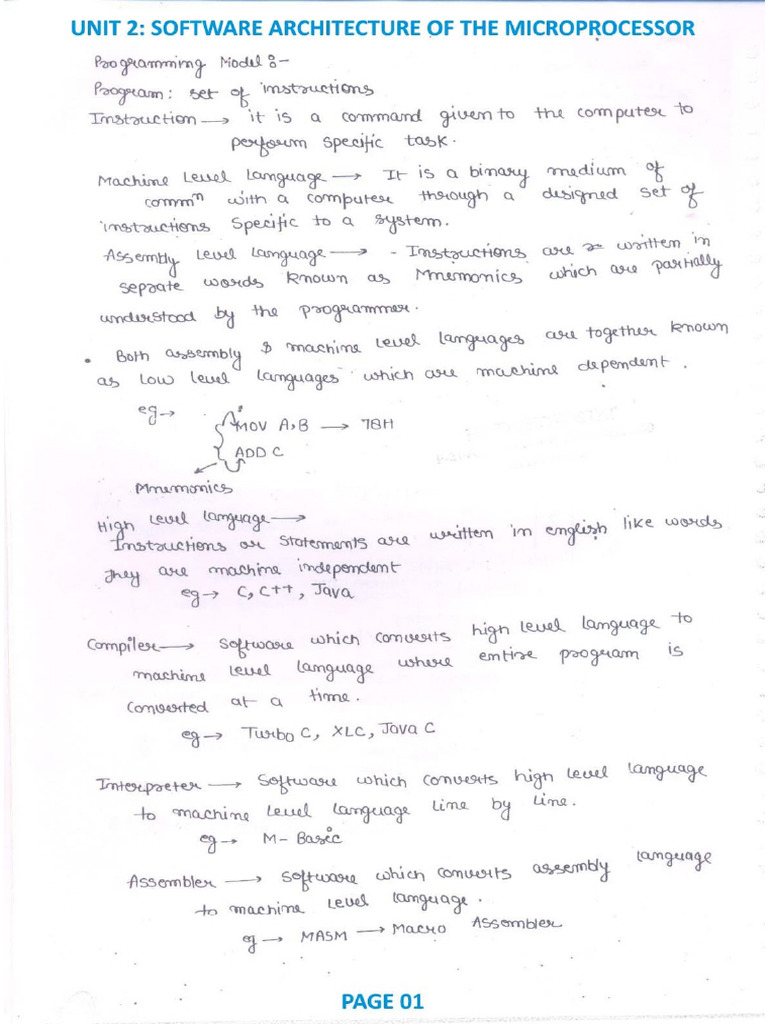 UNIT 2: SOFTWARE ARCHITECTURE OF THE MICROPROCESSOR
Programming Model :-
Program: set of instructions
Instruction → it is a command given to the computer to
perform specific task.
Machine Level Language → It is a binary medium of
commⁿ with a computer through a designed set of
instructions specific to a system.
Assembly Level Language → - Instructions are written in
seprate words known as Mnemonics which are partially
understood by the programmer.
• Both assembly & machine level languages are together known
as low level languages which are machine dependent.
eg → MOV A,B → 78H
ADD C
Mnemonics
High Level Language →
Instructions or statements are written in english like words
They are machine independent
eg → C, C++, Java
Compiler → Software which converts high level language to
machine level language where entire program is
converted at a time.
eg → Turbo C, XLC, Java C
Interpreter → Software which converts high level language
to machine level language line by line.
eg → M-Basic
Assembler → Software which converts assembly language
to machine level language.
eg → MASM → Macro Assembler
PAGE 01